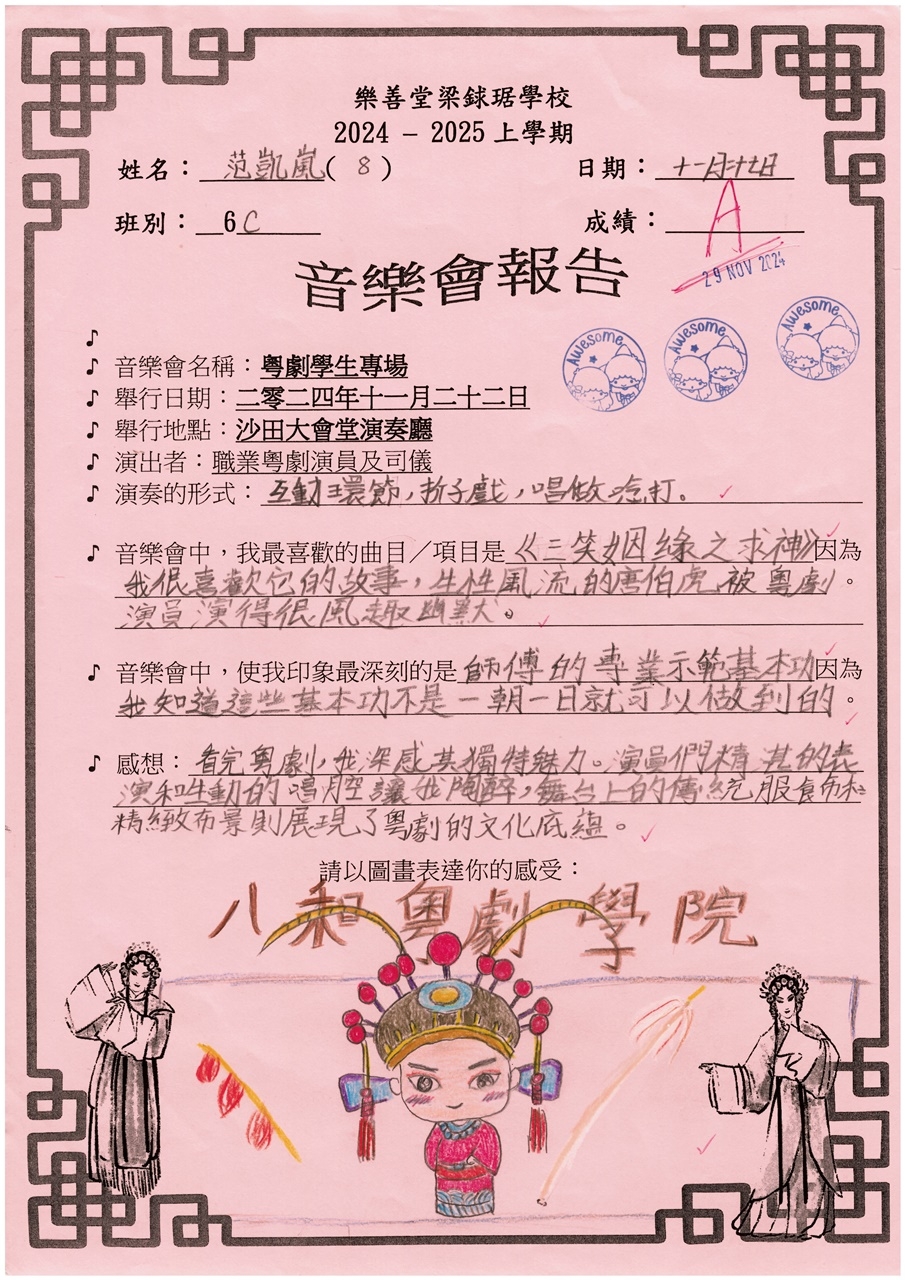 樂善堂梁銶琚學校
2024 – 2025 上學期
姓名：范凱嵐( 8 ) 日期：十一月廿七日
班別：6C 成績：A
29 NOV 2024
音樂會報告
♪
♪ 音樂會名稱：粵劇學生專場
♪ 舉行日期：二零二四年十一月二十二日
♪ 舉行地點：沙田大會堂演奏廳
♪ 演出者：職業粵劇演員及司儀
♪ 演奏的形式：互動環節，折子戲，唱做唸打。
Awesome
Awesome
Awesome
♪ 音樂會中，我最喜歡的曲目／項目是《三笑姻緣之求神》因為
我很喜歡它的故事，生性風流的唐伯虎被粵劇。
演員演得很風趣幽默。
♪ 音樂會中，使我印象最深刻的是師傅的專業示範基本功因為
我知道這些基本功不是一朝一日就可以做到的。
♪ 感想：看完粵劇，我深感其獨特魅力。演員們精湛的表
演和生動的唱腔讓我陶醉，舞台上的傳統服飾和
精緻布景則展現了粵劇的文化底蘊。
請以圖畫表達你的感受：
八和粵劇學院